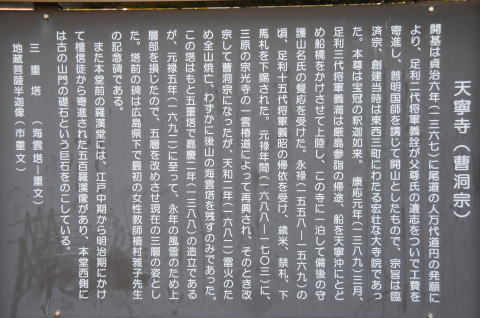 天寧寺(曹洞宗)
開基は貞治六年(一三六七)に尾道の人万代道円の発願に
より、足利二代将軍義詮が父尊氏の遺志をついで工費を
寄進し、普明国師を講じて開山としたもので、宗旨は臨
済宗、創建当時は東西三町にわたる宏壮な大寺院であっ
た。本尊は宝冠の釈迦如来。康応元年(一三八九)三月、
足利三代将軍義満は厳島参詣の帰途、船を天寧沖にとど
め船橋をかけさせて上陸し、この寺に一泊して備後の守
護山名氏の饗応を受けた。永禄(一五五八―一五六九)の
頃、足利十五代将軍義昭の帰依を受け、歳米、禁札、下
馬札を下賜された。元禄年間(一六八八―一七〇三)に、
三原の宗光寺の一雲椿道によって再興され、そのとき改
宗して曹洞宗になったが、天和二年(一六八二)雷火のた
め全山焼亡、わずかに後山の海雲塔を残すのみであった。
この塔はもと五重塔で嘉慶二年(一三八八)の造立である
が、元禄五年(一六九二)に至って、永年の風雪のため上
層部を損じたので、五層を改めさせ現在の三層の姿とし
た。塔前の碑は広島県下で最初の女性教師植村雅子先生
の記念碑である。
また本堂前の羅漢堂には、江戸中期から明治期にかけ
て檀信徒から寄進された五百羅漢像があり、本堂西側に
は古の山門の礎石という巨石をのこしている。
三重塔(海雲塔―重文)
地蔵菩薩半迦像(市重文)